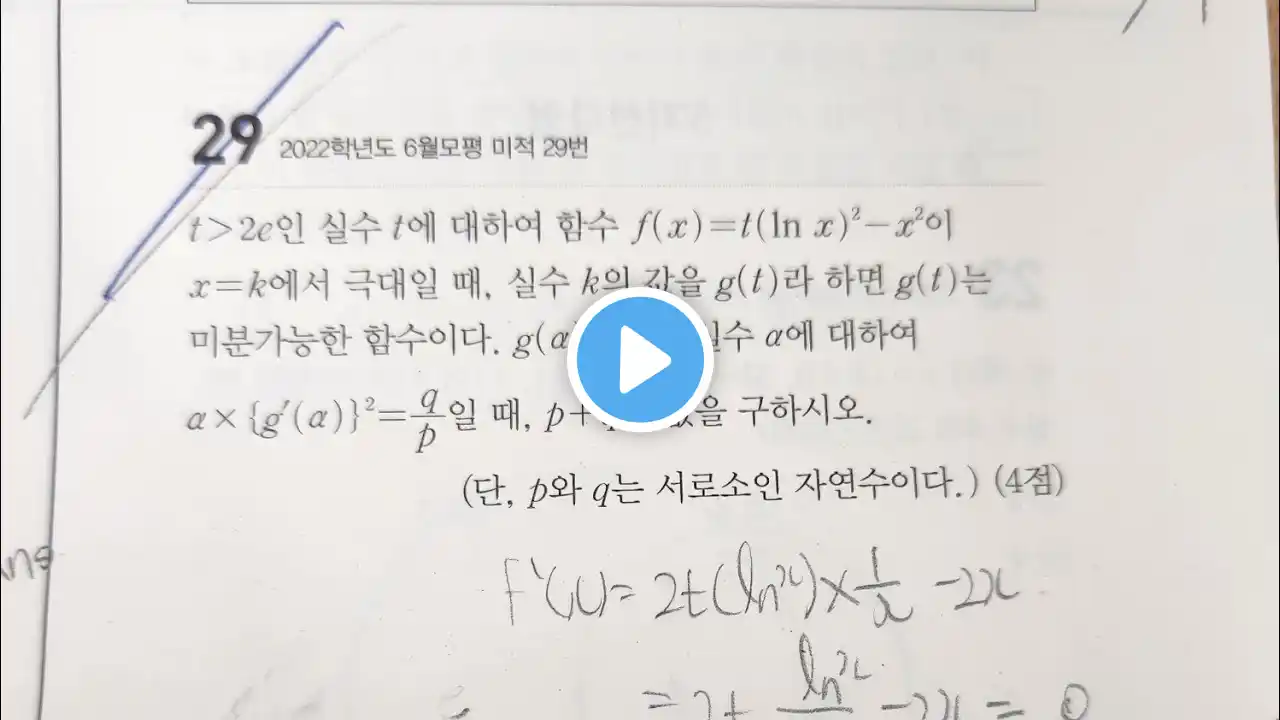 29 2022학년도 6월모평 미적 29번
t>2e인 실수 t에 대하여 함수 f(x)=t(ln x)²−x²이
x=k에서 극대일 때, 실수 k의 값을 g(t)라 하면 g(t)는
미분가능한 함수이다. g(α 실수 α에 대하여
α×{g′(α)}²=q/p일 때, p+ 값을 구하시오.
(단, p와 q는 서로소인 자연수이다.) (4점)
f'(x)= 2t(ln x)×1/x −2x
ns
ln x
= 2t −2x = 0